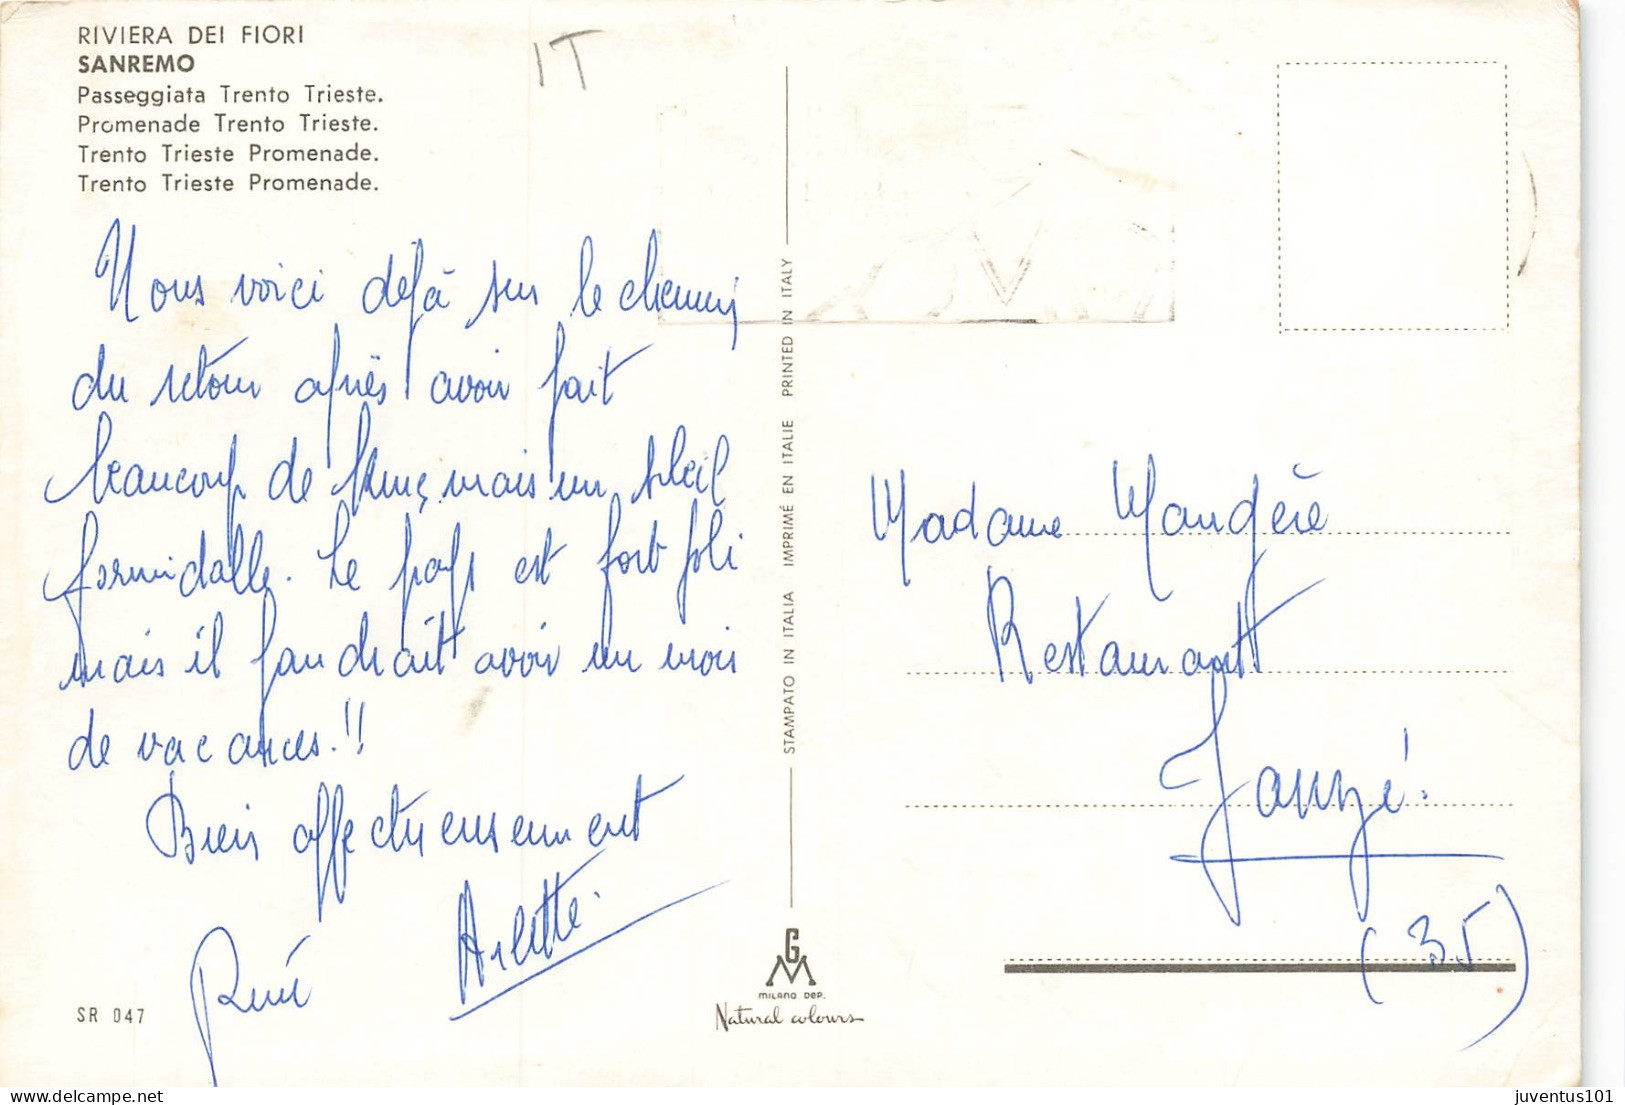 RIVIERA DEI FIORI
SANREMO
Passeggiata Trento Trieste.
Promenade Trento Trieste.
Trento Trieste Promenade.
Trento Trieste Promenade.
IT
Nous voici déjà sur le chemin
du retour après avoir fait
beaucoup de kms, mais un soleil
formidable. Le pays est fort joli
mais il faudrait avoir un mois
de vacances.!!
Bien affectueusement
René Arlette.
SR 047
STAMPATO IN ITALIA IMPRIMÉ EN ITALIE PRINTED IN ITALY
GM
MILANO DEP.
Natural colours
Madame Maugère
Restaurant
Janzé.
(35)
delcampe.net
juventus101